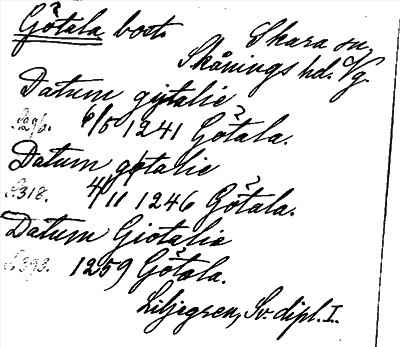 Götala bost. Skara sn.
Skånings hd. Vg.
Datum gøtalie
6/5 1241 Götala.
Datum gøtalie
S. 318. 4/11 1246 Götala.
Datum Giotalie
1259 Götala.
Liljegren, Sv. dipl. I.